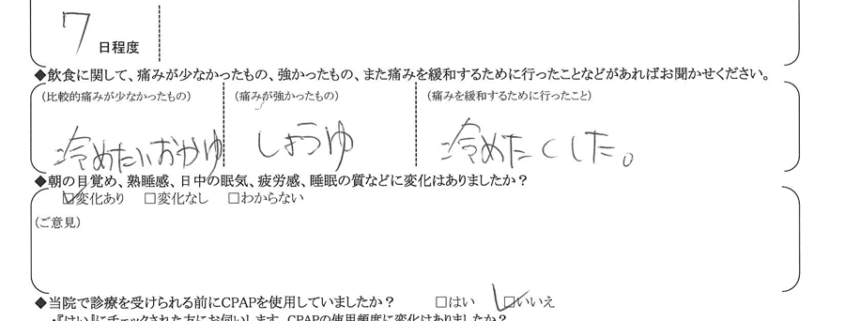 7 日程度
◆飲食に関して、痛みが少なかったもの、強かったもの、また痛みを緩和するために行ったことなどがあればお聞かせください。
（比較的痛みが少なかったもの） （痛みが強かったもの） （痛みを緩和するために行ったこと）
冷めたいおかゆ しょうゆ 冷めたくした。
◆朝の目覚め、熟睡感、日中の眠気、疲労感、睡眠の質などに変化はありましたか？
☑変化あり □変化なし □わからない
（ご意見）
◆当院で診療を受けられる前にCPAPを使用していましたか？ □はい ☑いいえ
・『はい』にチェックされた方にお伺いします。CPAPの使用頻度に変化はありましたか？